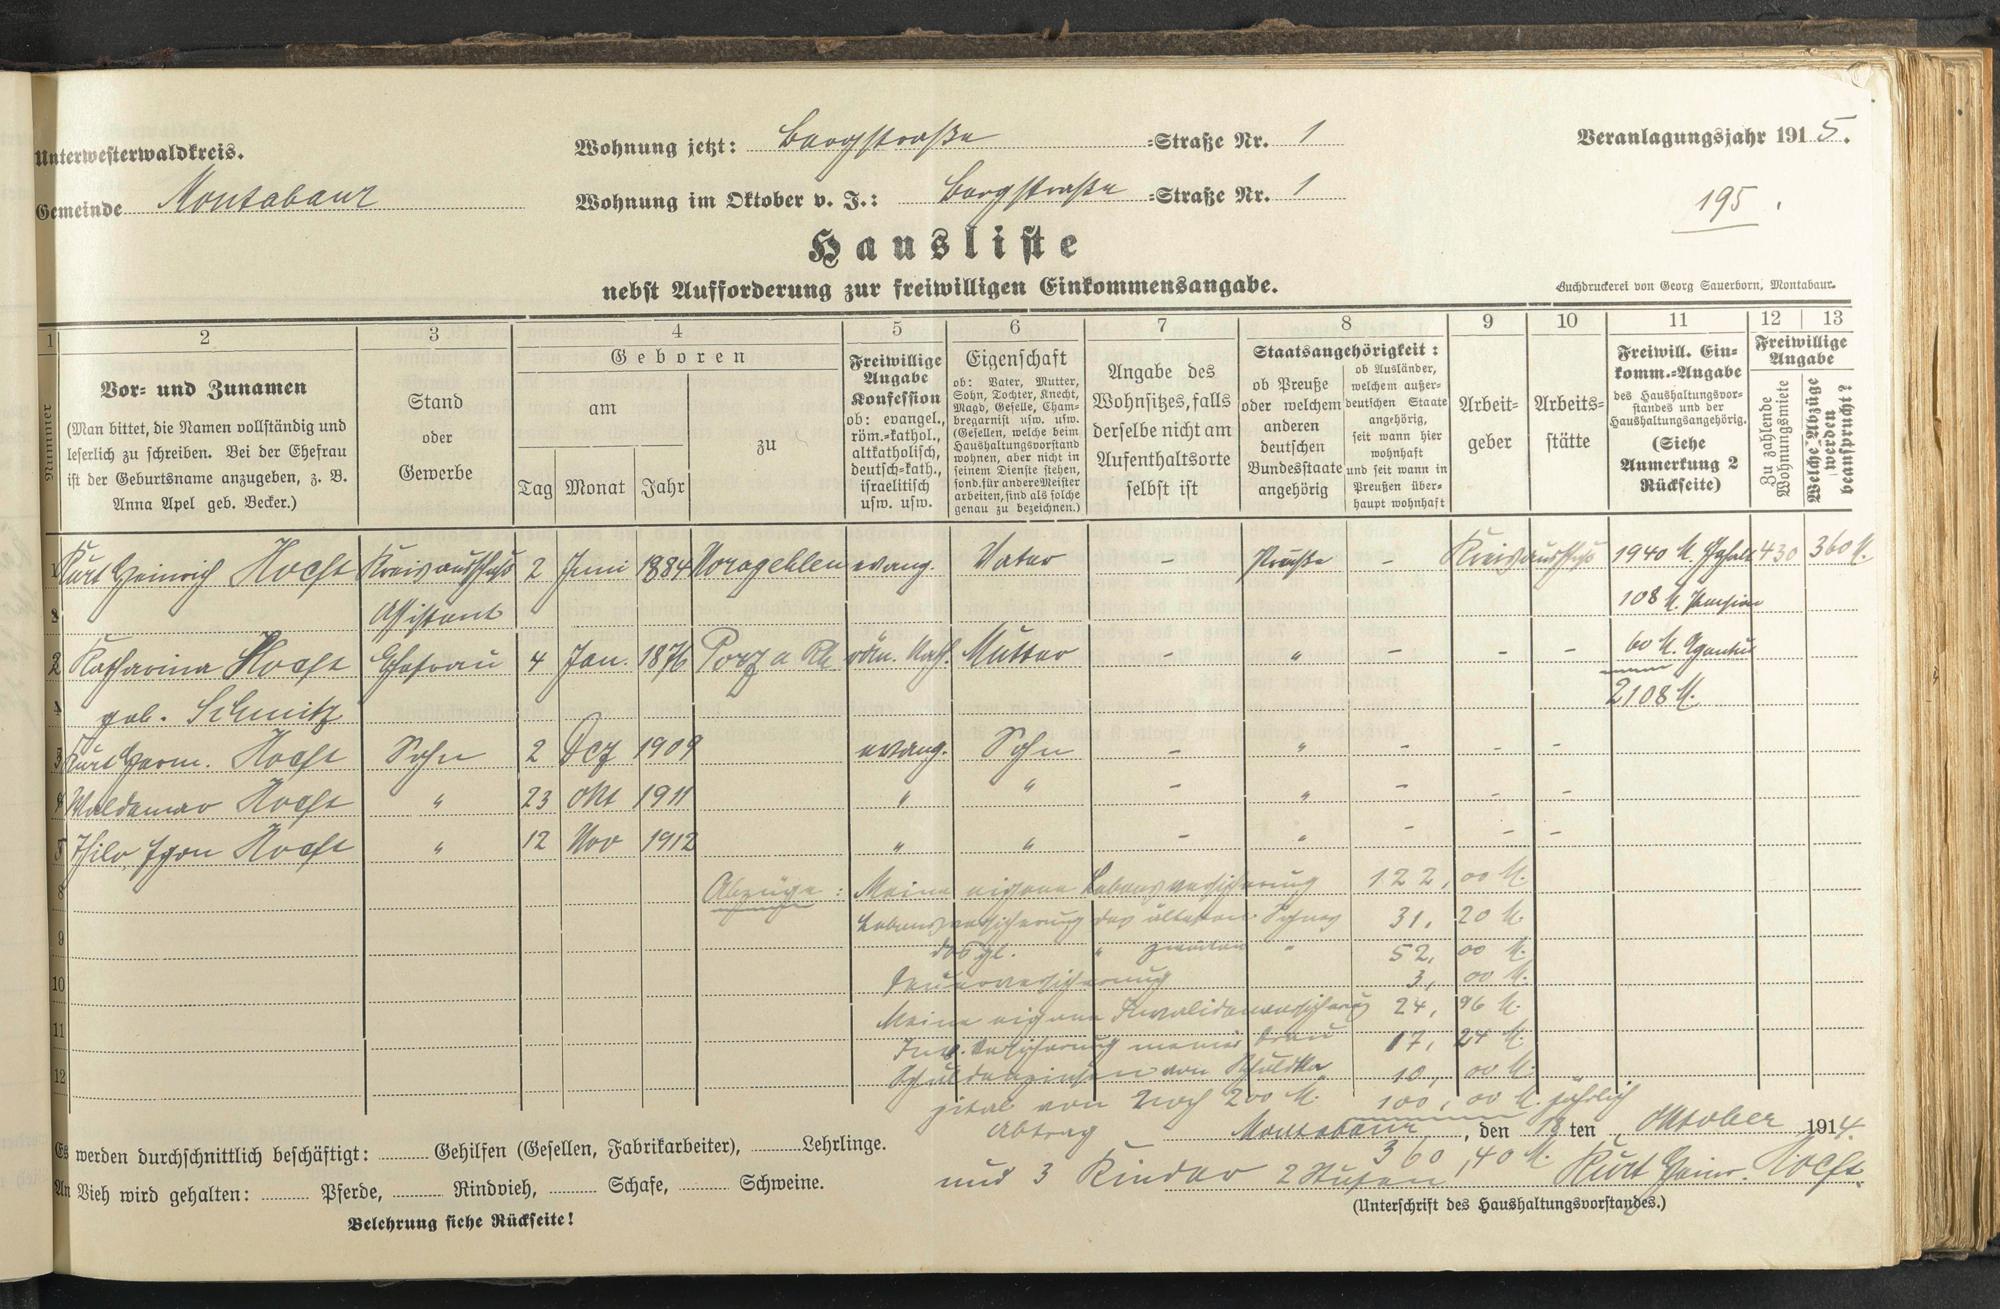 Unterwesterwaldkreis.
Gemeinde Montabaur
Wohnung jetzt: Bergstraße =Straße Nr. 1
Wohnung im Oktober v. J.: Bergstraße =Straße Nr. 1
Veranlagungsjahr 1915.
195.
Hausliste
nebst Aufforderung zur freiwilligen Einkommensangabe.
Buchdruckerei von Georg Sauerborn, Montabaur.
1 2 3 4 5 6 7 8 9 10 11 12 13
Nummer
Vor- und Zunamen
(Man bittet, die Namen vollständig und
leserlich zu schreiben. Bei der Ehefrau
ist der Geburtsname anzugeben, z. B.
Anna Apel geb. Becker.)
Stand
oder
Gewerbe
Geboren
am
Tag Monat Jahr
zu
Freiwillige
Angabe
Konfession
ob: evangel.,
röm.-kathol.,
altkatholisch,
deutsch-kath.,
israelitisch
usw. usw.
Eigenschaft
ob: Vater, Mutter,
Sohn, Tochter, Knecht,
Magd, Geselle, Cham-
bregarnist usw. usw.
(Gesellen, welche beim
Haushaltungsvorstand
wohnen, aber nicht in
seinem Dienste stehen,
sond. für andere Meister
arbeiten, sind als solche
genau zu bezeichnen.)
Angabe des
Wohnsitzes, falls
derselbe nicht am
Aufenthaltsorte
selbst ist
Staatsangehörigkeit:
ob Preuße
oder welchem
anderen
deutschen
Bundesstaate
angehörig
ob Ausländer,
welchem außer-
deutschen Staate
angehörig,
seit wann hier
wohnhaft
und seit wann in
Preußen über-
haupt wohnhaft
Arbeit-
geber
Arbeits-
stätte
Freiwill. Ein-
komm.-Angabe
des Haushaltungsvor-
standes und der
Haushaltungsangehörig.
(Siehe
Anmerkung 2
Rückseite)
Freiwillige
Angabe
Zu zahlende
Wohnungsmiete
Welche Abzüge
werden
beansprucht?
1 Kurt Heinrich Hoeft Kreisausschuß 2 Juni 1884 evang. Vater - Preuße - Kreisausschuß 1940 M. Gehalt 430 360 M.
Assistent 108 M. Pension
2 Katharina Hoeft Ehefrau 4 Jan. 1876 Porz a Rh. röm. Kath. Mutter - " - - - 60 M. Agentur
geb. Schmitz 2108 M.
3 Kurt Herm. Hoeft Sohn 2 Dez 1909 evang. Sohn - " - - -
4 Waldemar Hoeft " 23 Okt 1911 " " - " - - -
5 Thilo Egon Hoeft " 12 Nov 1912 " " - " - - -
8
Abzüge: Meine eigene Lebensversicherung 122,00 M.
9
Lebensversicherung des ältesten Sohnes 31,20 M.
desgl. " zweiten " 52,00 M.
10
Feuerversicherung 3,00 M.
Meine eigene Invalidenversicherung 24,96 M.
11
Inv. Versicherung meiner Frau 17,24 M.
12
Schuldenzinsen von Schuldka 10,00 M.
pital von noch 200 M.
Abtrag 100,00 M. jährlich
360,40 M.
und 3 Kinder 2 Stufen
Es werden durchschnittlich beschäftigt: Gehilfen (Gesellen, Fabrikarbeiter), Lehrlinge.
An Vieh wird gehalten: Pferde, Rindvieh, Schafe, Schweine.
Belehrung siehe Rückseite!
Montabaur, den 18ten Oktober 1914.
Kurt Heinr. Hoeft.
(Unterschrift des Haushaltungsvorstandes.)